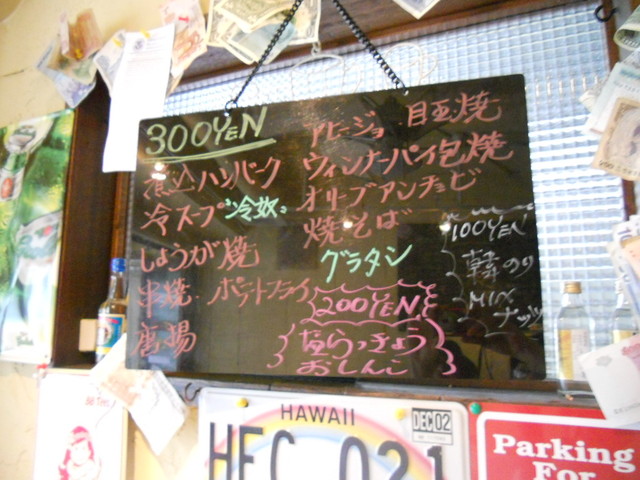 300YEN
煮込ハンバーク
冷スープ 冷奴。
しょうが焼
串焼・ポテトフライ
唐揚
アヒージョ・目玉焼
ウィンナーパイ包焼
オリーブアンチョビ
焼そば
グラタン
200YEN!
塩らっきょう
おしんこ
100YEN
韓のり
MIX
ナッツ
HAWAII
DEC 02
HFC 021
Parking
For